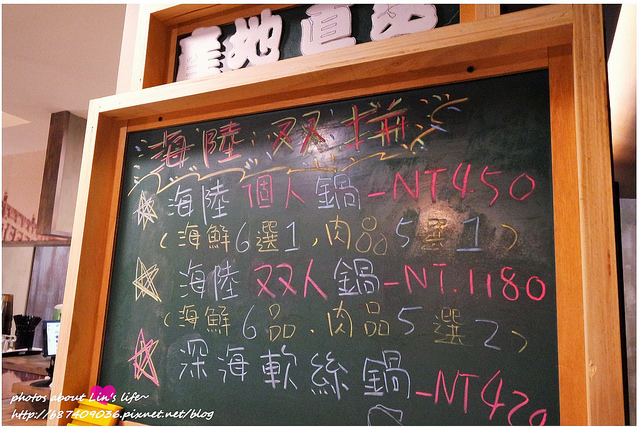 產地直送
海陸双拼
海陸個人鍋-NT450
(海鮮6選1,肉品5選1)
海陸双人鍋-NT.1180
(海鮮6品.肉品5選2)
深海軟絲鍋-NT420
photos about Lin's life~
http://b87409036.pixnet.net/blog